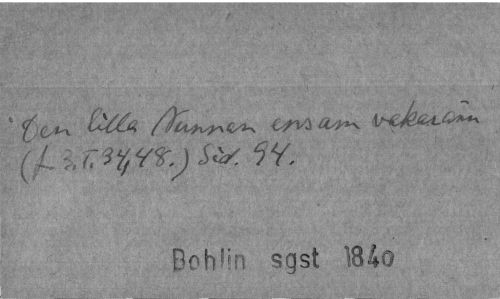 Den lilla Nunnan ensam vaker än
(L 3. T. 34,48.) Sid. 94.
Bohlin sgst 1840